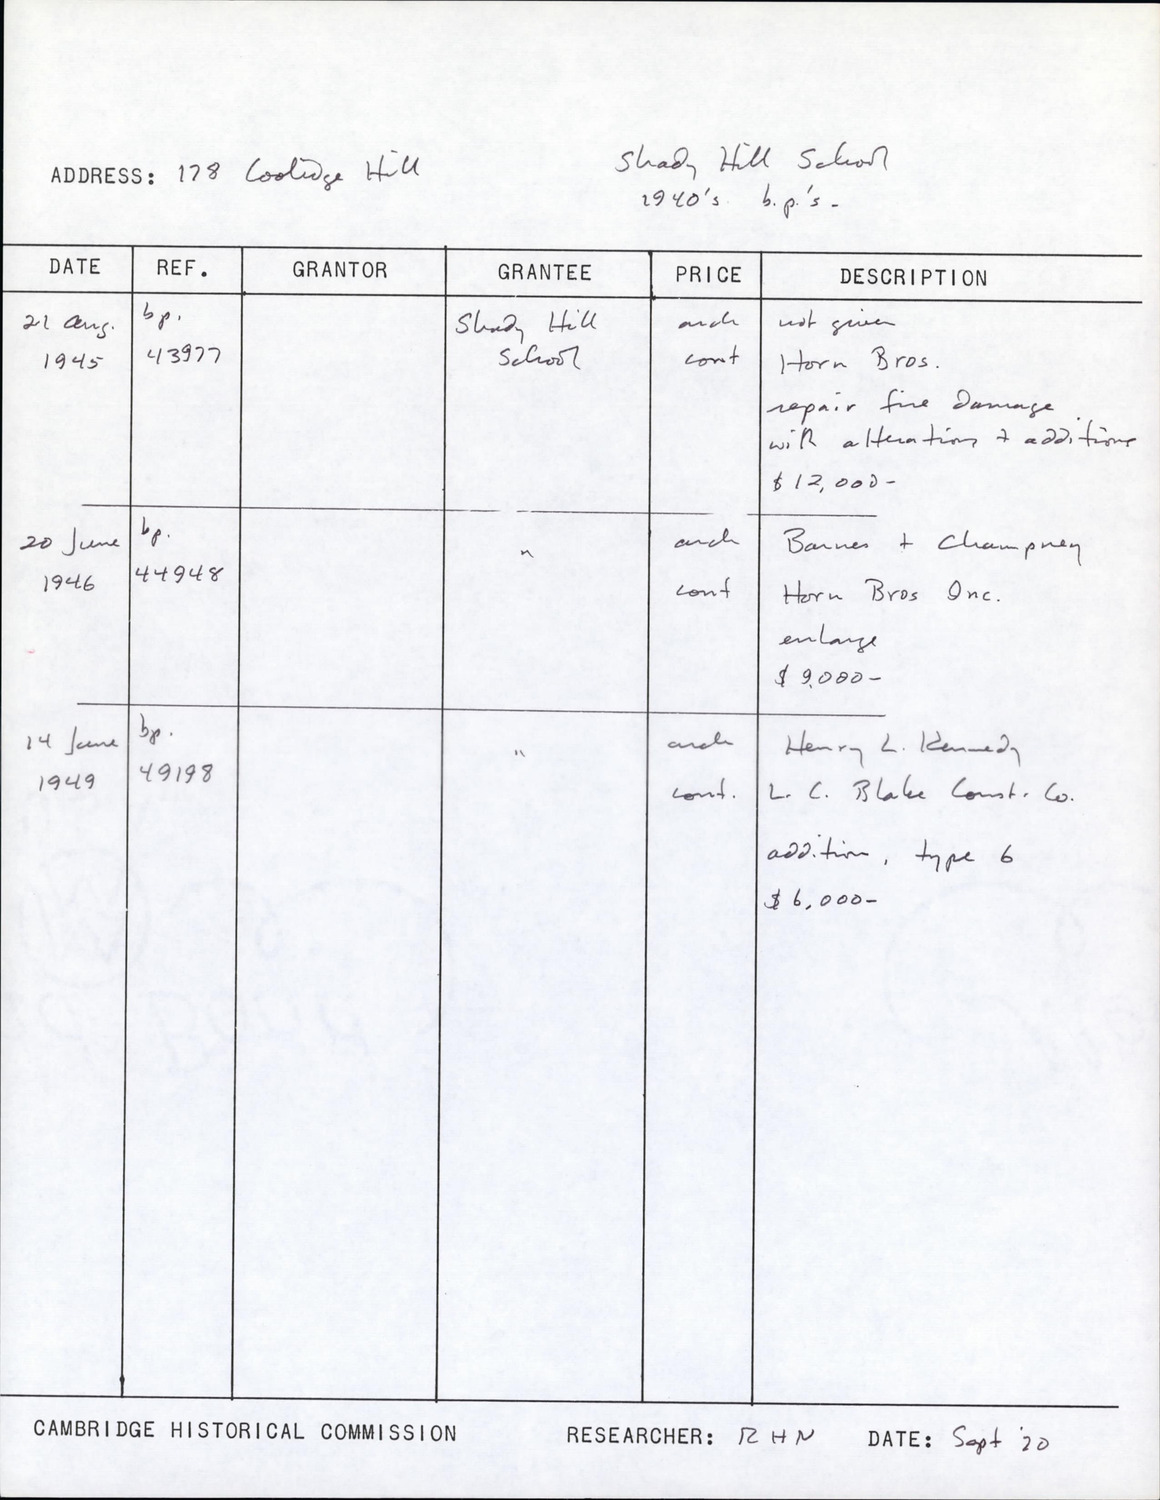 Shady Hill School
ADDRESS: 178 Coolidge Hill
1940's b.p.'s -
DATE REF. GRANTOR GRANTEE PRICE DESCRIPTION
21 Aug. bp. Shady Hill arch not given
1945 43977 School cont Horn Bros.
repair fire damage
with alterations + additions
$12,000-
20 June bp. " arch Barnes + Champney
1946 44948 cont Horn Bros Inc.
enlarge
$9,000-
14 June bp. " arch Henry L. Kennedy
1949 49198 cont. L. C. Blake Const. Co.
addition, type 6
$6,000-
CAMBRIDGE HISTORICAL COMMISSION RESEARCHER: RHN DATE: Sept '20